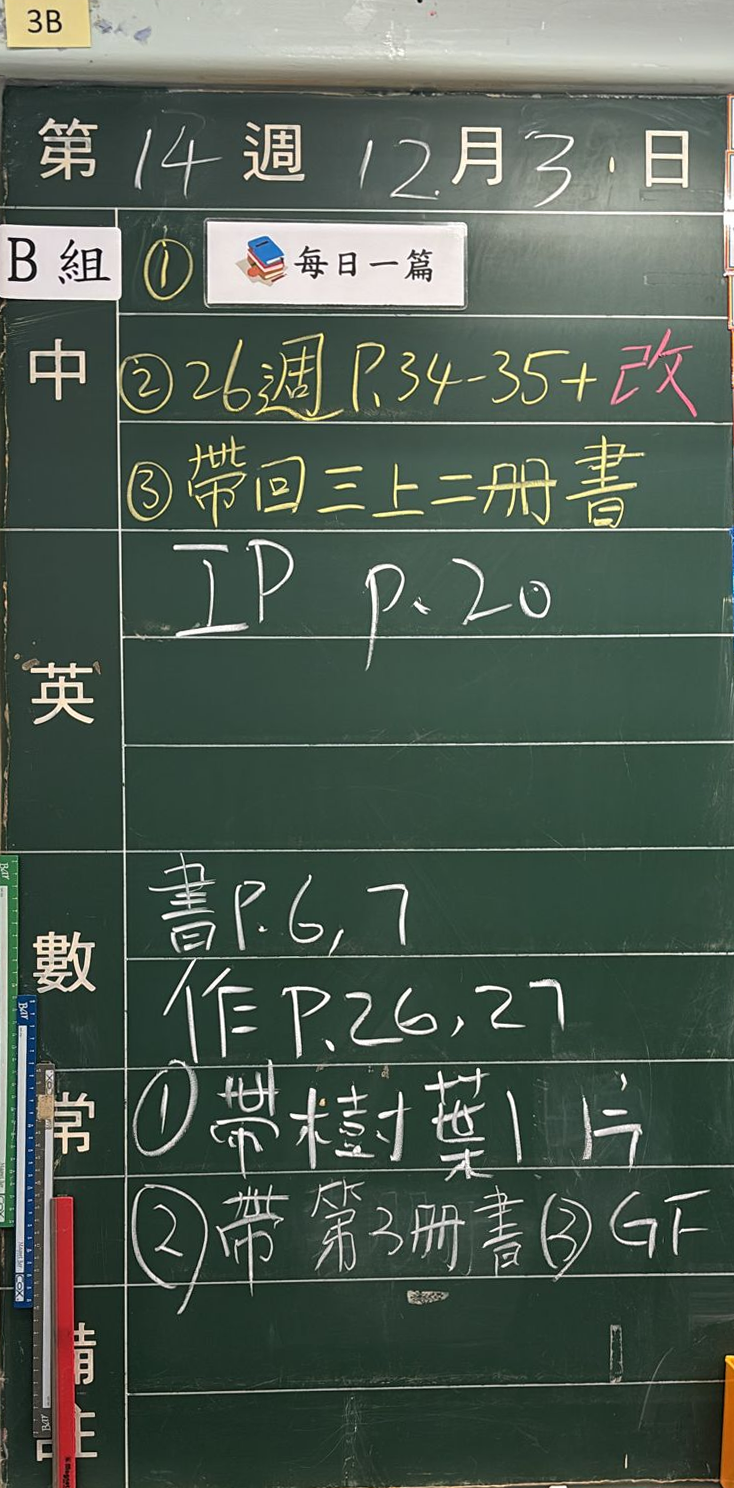 3B
第 14 週 12月3日
B組 ① 每日一篇
中 ② 26週 P.34-35+改
③ 帶回三上二冊書
英 IP p.20
數 書P.6, 7
作P.26, 27
常 ①帶樹葉1片
②帶第3冊書 ③GF
備註